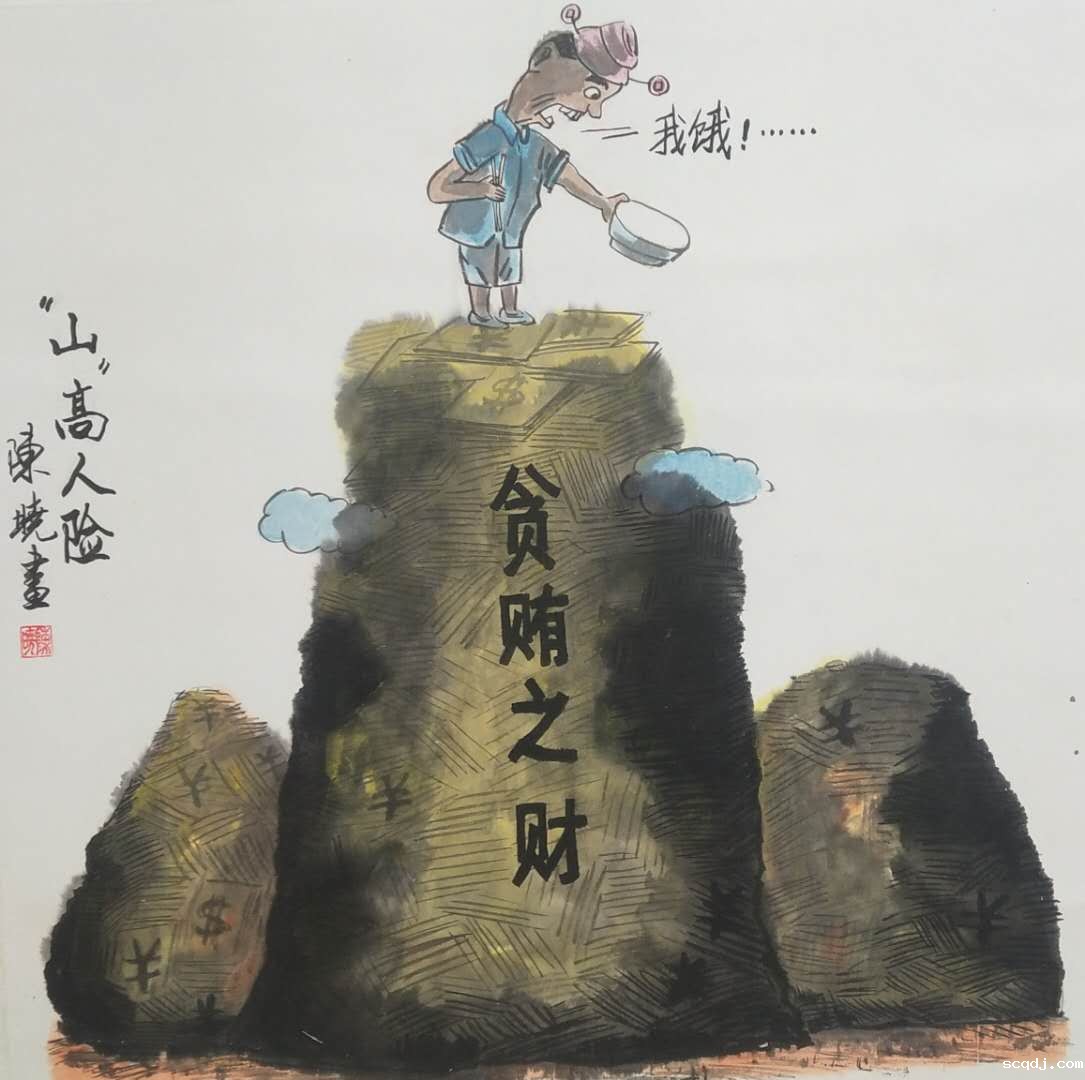 我饿!……
“山”高人险
陳曉畫
贪贿之财
¥
$
¥
¥
¥
¥
$
¥
¥
¥
¥
¥
scqdj.com